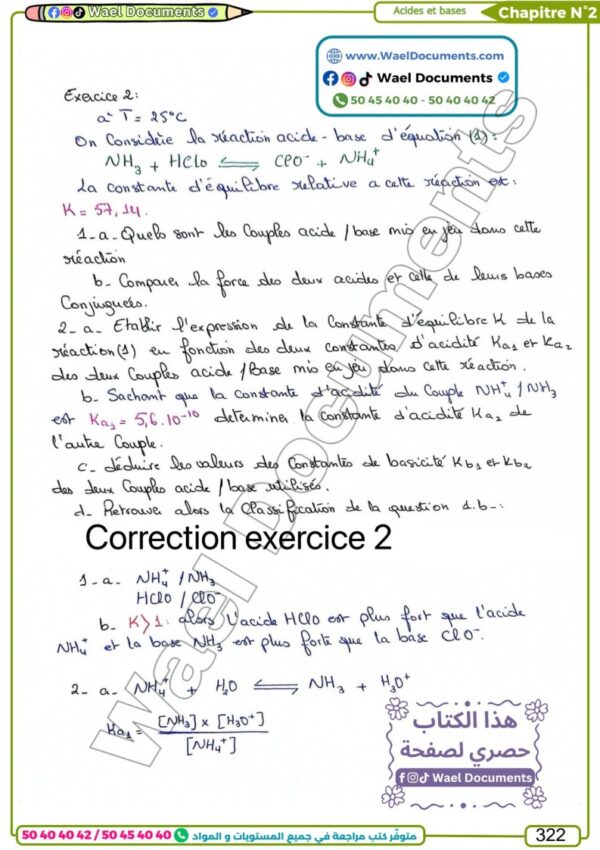 Wael Documents
Acides et bases
Chapitre N°2
www.WaelDocuments.com
Wael Documents
50 45 40 40 - 50 40 40 42
Exercice 2:
a T = 25°C
On Considère la réaction acide-base d'équation (1):
NH3 + HClO ⇌ ClO- + NH4+
La constante d'équilibre relative a cette réaction est:
K = 57,14.
1_a_Quels sont les Couples acide/base mis en jeu dans cette
réaction
b_ Comparer la force des deux acides et celle de leurs bases
Conjuguées.
2_a_ Etablir l'expression de la Constante d'équilibre K de la
réaction(1) en fonction des deux constantes d'acidité Ka1 et Ka2
des deux Couples acide/base mis en jeu dans cette réaction.
b_ Sachant que la constante d'acidité du Couple NH4+/NH3
est Ka1 = 5,6.10-10 determiner la constante d'acidité Ka2 de
l'autre Couple.
c_ déduire les valeurs des Constantes de basicité Kb1 et Kb2
des deux Couples acide/base utilisés.
d_ Retrouver alors la Classification de la question 1.b-:
Correction exercice 2
1_a_ NH4+/NH3
HClO/ClO-
b_ K>1: alors l'acide HClO est plus fort que l'acide
NH4+ et la base NH3 est plus forte que la base ClO-.
2_a_ NH4+ + H2O ⇌ NH3 + H3O+
Ka1 = [NH3] x [H3O+]
[NH4+]
Wael Documents
هذا الكتاب
حصري لصفحة
Wael Documents
50 40 40 42 / 50 45 40 40
متوفّر كتب مراجعة في جميع المستويات و المواد
322